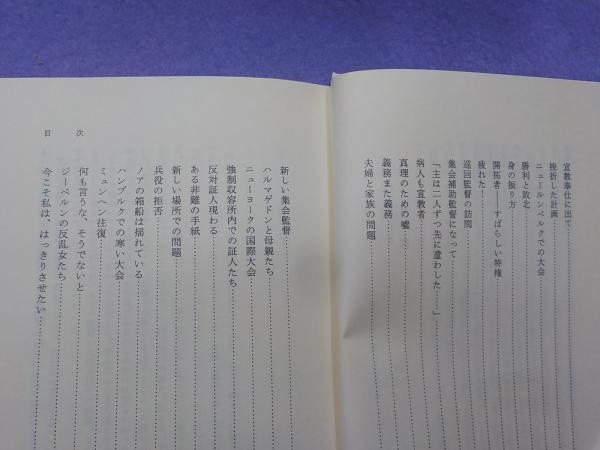 宣教奉仕に出て
挫折した計画
ニュールンベルクでの大会
勝利と敗北
身の振り方
開拓者——すばらしい特権
疲れた！
巡回監督の訪問
集会補助監督になって
「主は二人ずつ先に遣わした…」
病人も宣教者
真理のための嘘
義務また義務
夫婦と家族の問題
新しい集会監督
ハルマゲドンと母親たち
ニューヨークの国際大会
強制収容所内での証人たち
反対証人現わる
ある非難の手紙
新しい場所での問題
兵役の拒否
ノアの箱船は揺れている
ハンブルクでの寒い大会
ミュンヘン往復
何も言うな、そうでないと
ジーベルンの反乱女たち
今こそ私は、はっきりさせたい
目次